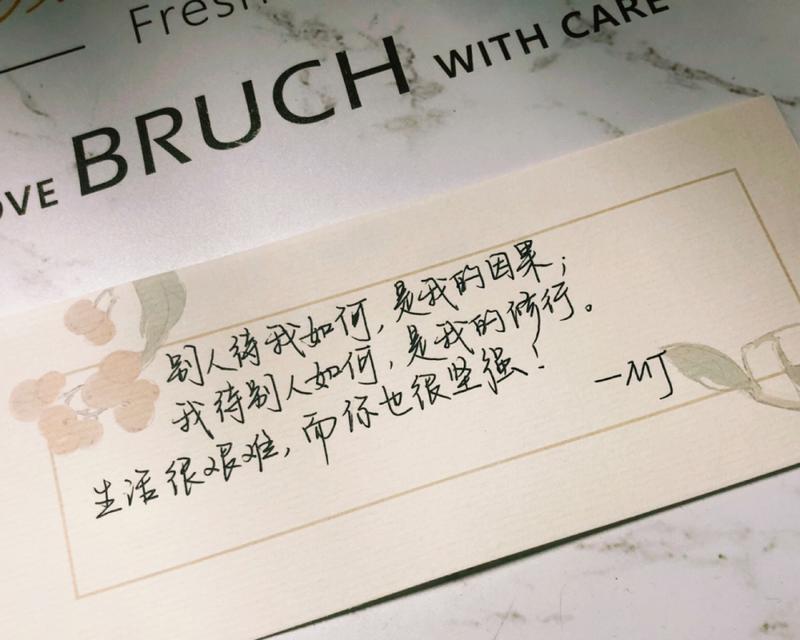 Fresh
OVE BRUCH WITH CARE
别人待我如何，是我的因果；
我待别人如何，是我的修行。
生活很艰难，而你也很坚强！
—MJ